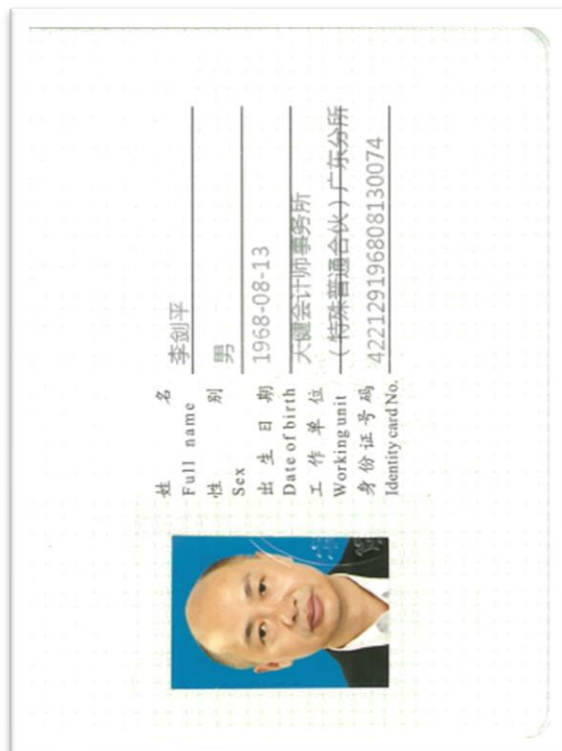 姓名 李剑平
Full name
性别 男
Sex
出生日期 1968-08-13
Date of birth
工作单位 大健会计师事务所
Working unit （特殊普通合伙）广东分所
身份证号码 422129196808130074
Identity card No.